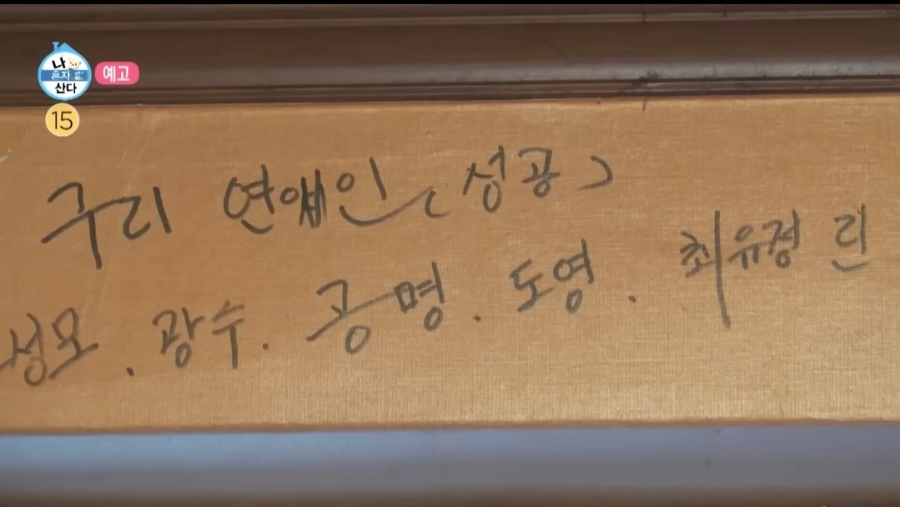 나
혼자
산다
예고
15
구리 연예인 (성공)
성모. 광수. 공명. 도영. 최유정 린